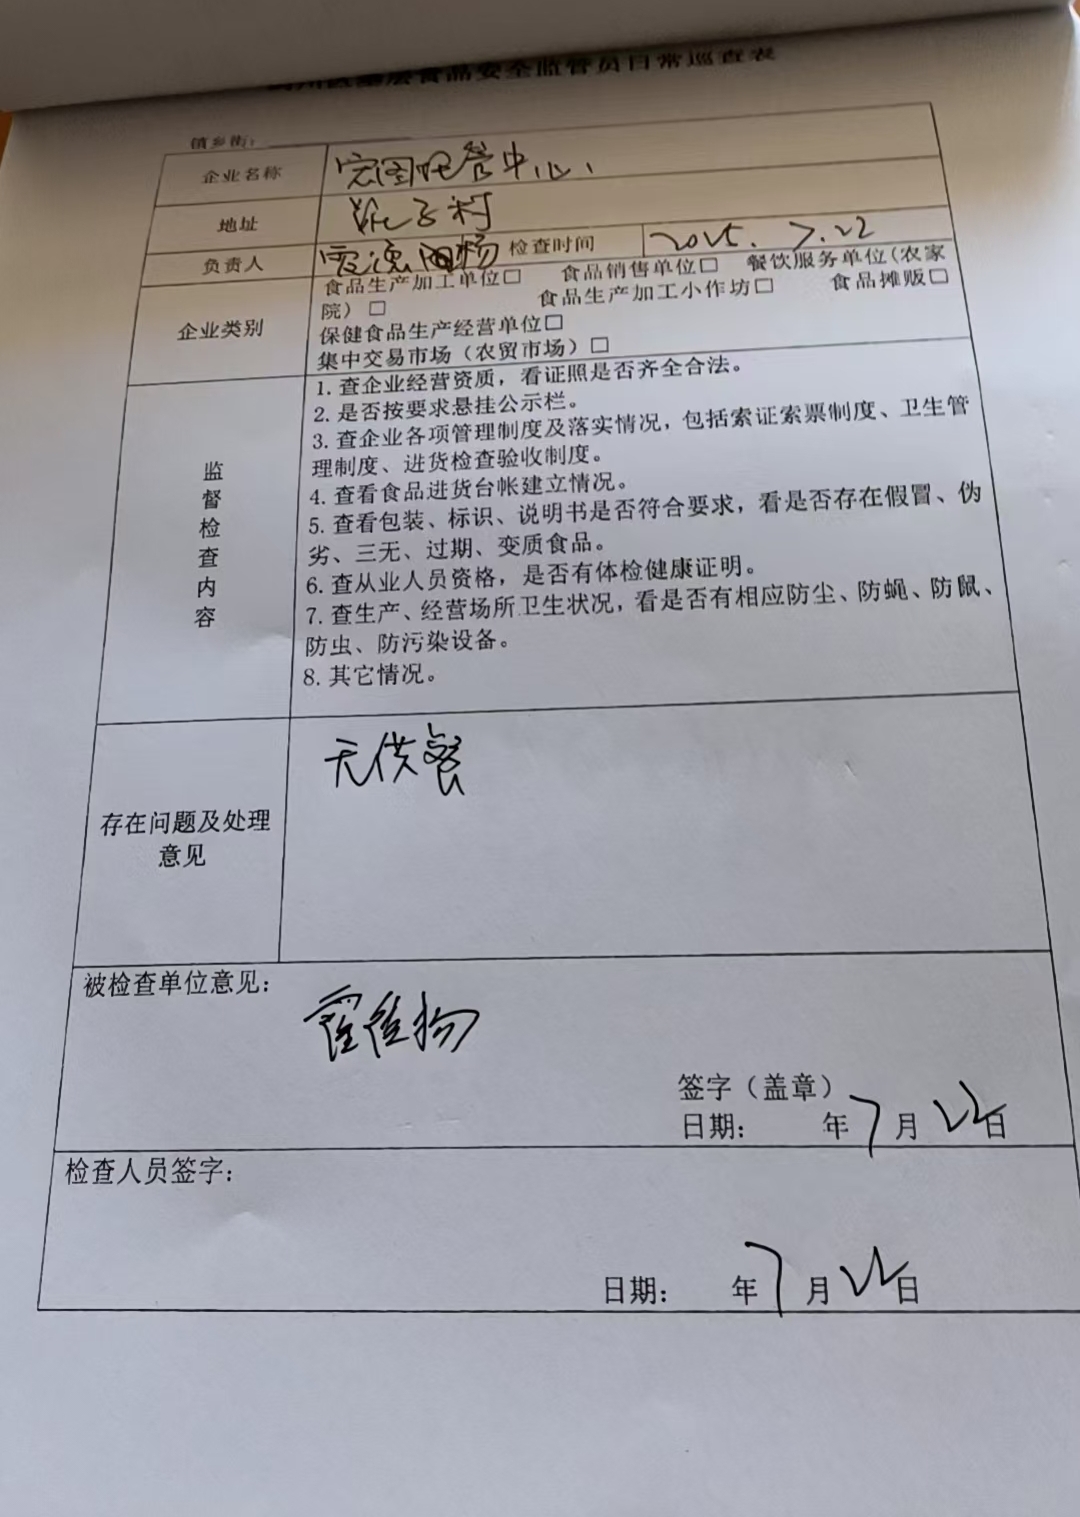 基层食品安全监管员日常巡查表
镇乡街：
企业名称 宏图托管中心
地址 子村
负责人 检查时间 2025.7.22
企业类别
食品生产加工单位□ 食品销售单位□ 餐饮服务单位（农家
院）□ 食品生产加工小作坊□ 食品摊贩□
保健食品生产经营单位□
集中交易市场（农贸市场）□
监督检查内容
1. 查企业经营资质，看证照是否齐全合法。
2. 是否按要求悬挂公示栏。
3. 查企业各项管理制度及落实情况，包括索证索票制度、卫生管
理制度、进货检查验收制度。
4. 查看食品进货台帐建立情况。
5. 查看包装、标识、说明书是否符合要求，看是否存在假冒、伪
劣、三无、过期、变质食品。
6. 查从业人员资格，是否有体检健康证明。
7. 查生产、经营场所卫生状况，看是否有相应防尘、防蝇、防鼠、
防虫、防污染设备。
8. 其它情况。
存在问题及处理
意见
无供餐
被检查单位意见：
签字（盖章）
日期： 年7月22日
检查人员签字：
日期： 年7月22日